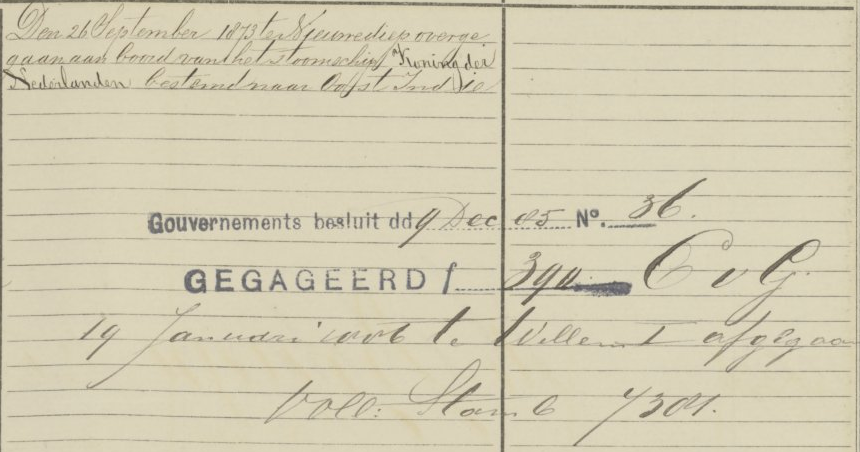 Den 26 September 1873 te Nieuwediep overge
gaan aan boord van het stoomschip "Koning der
Nederlanden bestemd naar Oost Indie
Gouvernements besluit dd 9 Dec 85 No. 36.
GEGAGEERD f 390 C v G.
19 Januari 1886 te Willem I afgegaan
Voll: Stamb 7301.